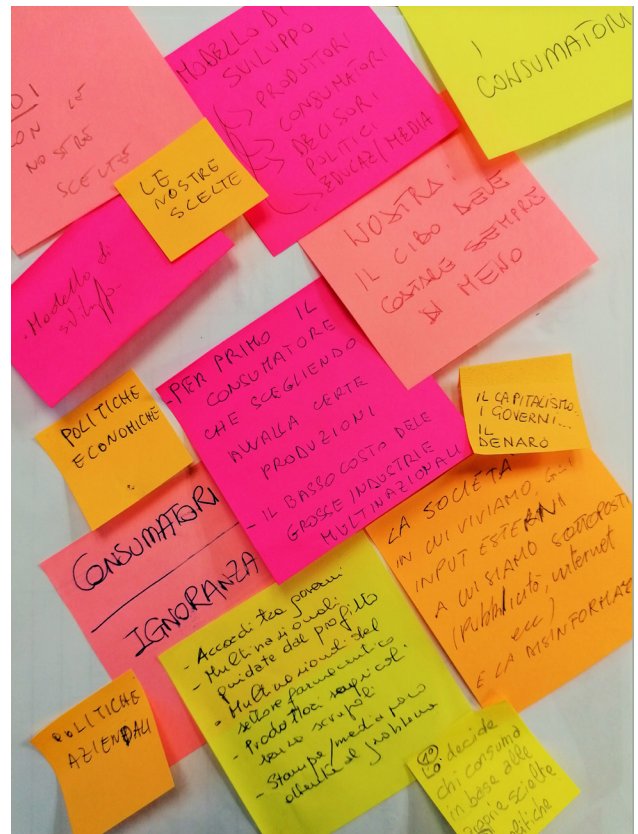 DI
CON LE
NOSTRE
SCELTE
MODELLO DI
SVILUPPO
PRODUTTORI
CONSUMATORI
DECISORI
POLITICI
EDUCAZ/MEDIA
I
CONSUMATORI
LE
NOSTRE
SCELTE
NOSTRA
IL CIBO DEVE
COSTARE SEMPRE
DI MENO
Modello di
sviluppo
- PER PRIMO IL
CONSUMATORE
CHE SCEGLIENDO
AVVALLA CERTE
PRODUZIONI
- IL BASSO COSTO DELE
GROSSE INDUSTRIE
MULTINAZIONALI
POLITICHE
ECONOMICHE
IL CAPITALISMO...
I GOVERNI...
IL
DENARO
CONSUMATORI
IGNORANZA
LA SOCIETA'
IN CUI VIVIAMO, GLI
INPUT ESTERNI
A CUI SIAMO SOTTOPOSTI
(Pubblicità, internet
ecc)
E LA DISINFORMAZ
- Accordi tra governi
- Multinazionali
guidate dal profitto
- Multinazionali del
settore farmaceutico
- Produttori agricoli
senza scrupoli
- Stampa/media poco
attenta al problema
POLITICHE
AZIENDALI
Lo decide
chi consuma
in base alle
proprie scelte